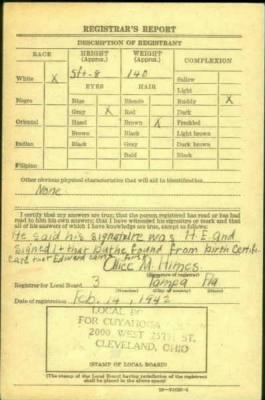 REGISTRAR'S REPORT
DESCRIPTION OF REGISTRANT
RACE HEIGHT (Approx.) WEIGHT (Approx.) COMPLEXION
White X 5ft-8 140 Sallow
Light
EYES HAIR
Negro Blue Blonde Ruddy X
Gray X Red Dark
Oriental Hazel Brown X Freckled
Brown Black Light brown
Indian Black Gray Dark brown
Bald Black
Filipino
Other obvious physical characteristics that will aid in identification
None
I certify that my answers are true; that the person registered has read or has had
read to him his own answers; that I have witnessed his signature or mark and that
all of his answers of which I have knowledge are true, except as follows:
He said his signature was H.E. and
signed it that but he found from birth certifi-
cate that Edward came first
Alice M. Himes
(Signature of registrar)
Registrar for Local Board 3 Tampa Fla
(Number) (City or county) (State)
Date of registration Feb. 14, 1942
LOCAL BO
FOR CUYAHOGA
2000 WEST 25TH ST.
CLEVELAND, OHIO
STAMP OF LOCAL BOARD
(The stamp of the Local Board having jurisdiction of the registrant
shall be placed in the above space)